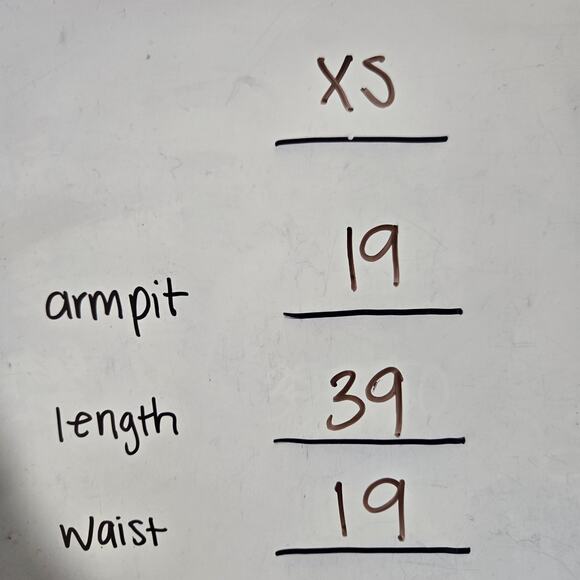 XS
armpit 19
length 39
waist 19